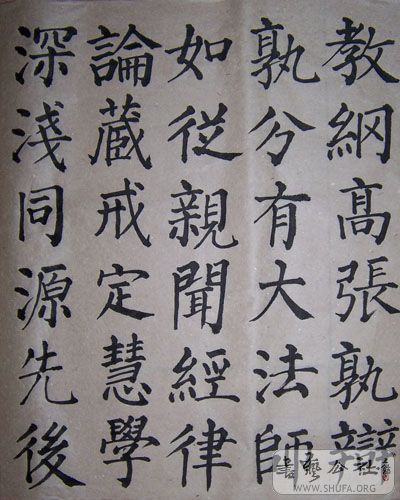 教綱髙張孰辯
孰分有大法師
如從親聞經律
論藏戒定慧學
深淺同源先後
WWW.SHUFA.ORG